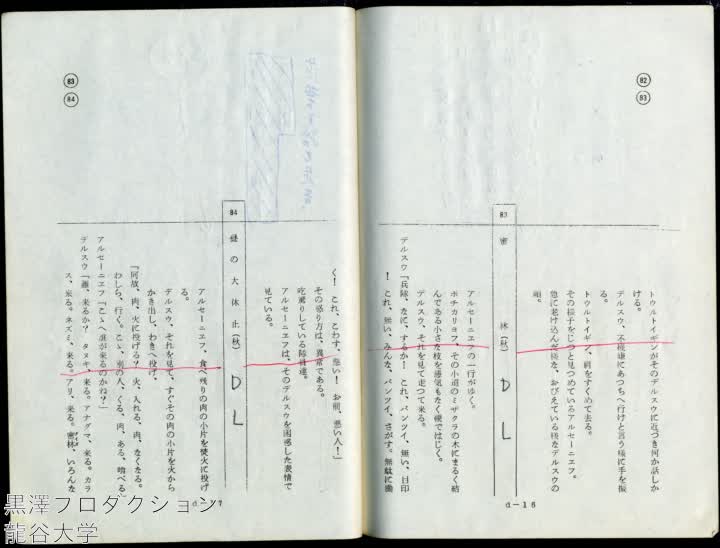 82
83
トウルトイギンがそのデルスウに近づき何か話しか
ける。
デルスウ、不機嫌にあつちへ行けと言う様に手を振
る。
トウルトイギン、肩をすくめて去る。
その様子をじつと見つめているアルセーニエフ。
急に老け込んだ様な、おびえている様なデルスウの
顔。
83 密林(秋) D L
アルセーニエフの一行がゆく。
ポチカリヨフ、その小道のミザクラの木にまるく結
んである小さな枝を何気もなく鞭ではじく。
デルスウ、それを見て走つて来る。
デルスウ「兵隊、なに、するか! これ、パンツイ、無い、目印
! これ、無い、みんな、パンツイ、さがす。無駄に働
d-16
83
84
く! これ、こわす、悪い! お前、悪い人!」
その怒り方は、異常である。
吃驚りしている隊員達。
アルセーニエフは、そのデルスウを困惑した表情で
見ている。
84 昼の大休止(秋) D L
アルセーニエフ、食べ残りの肉の小片を焚火に投げ
る。
デルスウ、それを見て、すぐその肉の小片を火から
かき出し、わきへ投げ、
「何故、肉、火に投げる? 火、入れる、肉、なくなる。
わしら、行く。こゝ、別の人、くる、肉、ある、喰べる」
アルセーニエフ「こゝへ誰が来るのかね?」
デルスウ「誰、来るか? タヌキ、来る。アナグマ、来る。カラ
ス、来る。ネズミ、来る。アリ、来る。密林、いろんな
黒澤プロダクション
龍谷大学